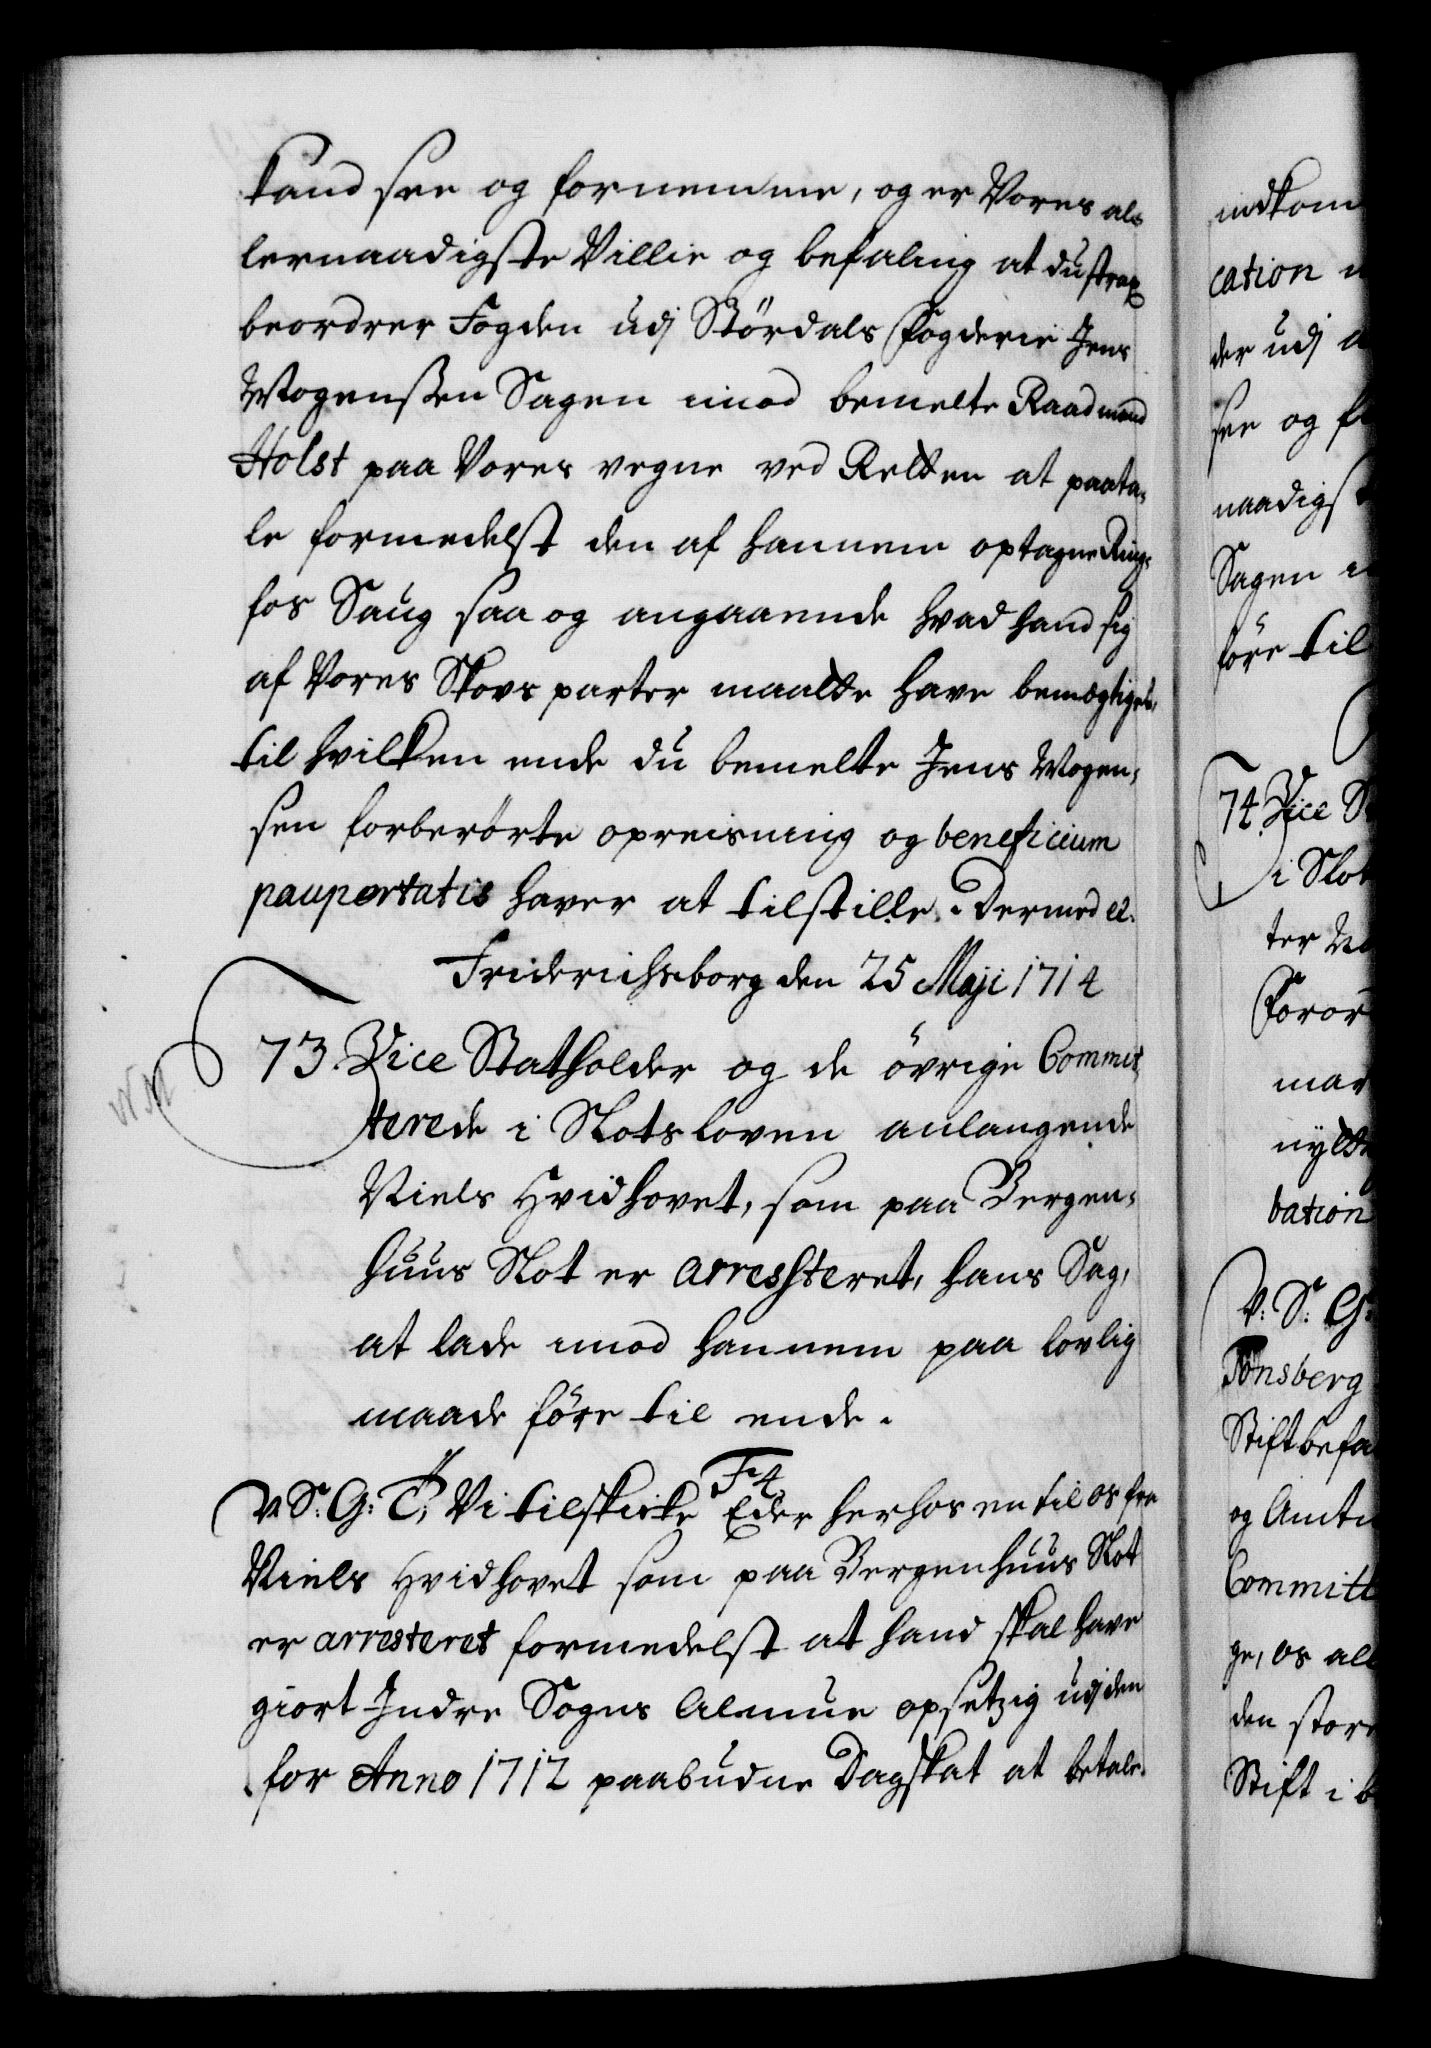 kand see og fornemme, og er Vores al-
lernaadigste Villie og befaling at du strax
beordrer Fogden udj Stördals Fogderie Jens
Mogenssen Sagen imod bemelte Raadmand
Holst paa Vores vegne ved Retten at paata-
le formedelst den af hannem optagne Ring-
fos Saug saa og angaaende hvad hand sig
af Vores Skovs parter maatte have bemægtiget,
til hvilken ende du bemelte Jens Mogen-
sen forberørte opreisning og beneficium
paupertatis haver at tilstille. Dermed etc.
Friderichsborg den 25 Maji 1714
73. Vice Statholder og de övrige Commit-
terede i Slotsloven anlangende
Niels Hvidhovet, som paa Bergen-
huus Slot er arresteret, hans Sag,
at lade imod hannem paa lovlig
maade føre til ende.
F4
V. S: G: T, Vi tilskicke Eder herhos en til os fra
Niels Hvidhovet som paa Bergenhuus Slot
er arresteret formedelst at hand skal have
giort Indre Sogns Almue opsetzig udj den
for Anno 1712 paabudne Dagskat at betale.
indkom
cation
der udj
see og
naadigst
Sagen
føre til
74. Vice
i Slot
ter
Foror
mar
nytte
bation
V: S: G:
Tonsberg
Stiftbefa
og Amt
Committ
ge, os all
den store
Stift i